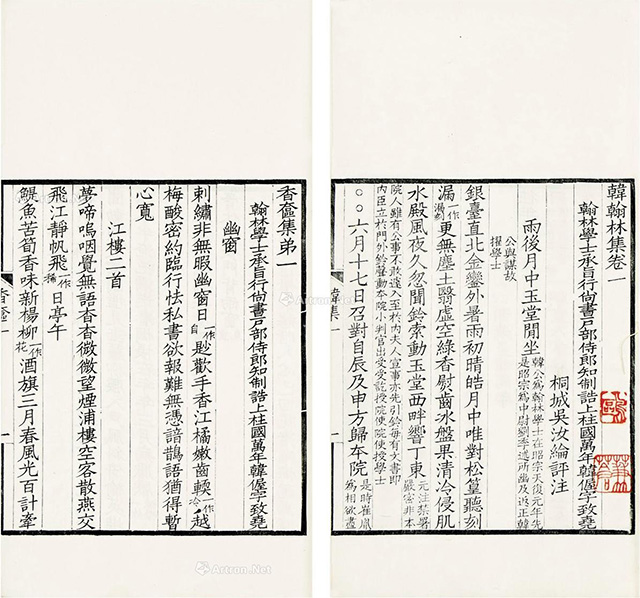 韓翰林集卷一
翰林學士承旨行尚書戶部侍郎知制誥上柱國萬年韓偓字致堯
桐城吳汝綸評注
雨後月中玉堂閒坐韓公為翰林學士在昭宗天復元年先是昭宗為中尉劉季述所幽及返正韓
公與謀故擢學士
銀臺直北金鑾外暑雨初晴皓月中唯對松篁聽刻
漏一作漏刻更無塵土翳虛空綠香熨齒冰盤果清冷侵肌
水殿風夜久忽聞鈴索動玉堂西畔響丁東元注禁署嚴密非本
院人雖有公事不敢遽入至於內夫人宣事亦先引鈴每有文書即
內臣立於門外鈴聲動本院小判官出受受訖授院使院使授學士
○○六月十七日召對自辰及申方歸本院是時崔胤為相欲盡
韓集一
一
香奩集弟一
翰林學士承旨行尚書戶部侍郎知制誥上柱國萬年韓偓字致堯
幽窗
刺繡非無暇幽窗日一作自尠歡手香江橘嫩齒輭一作冷越
梅酸密約臨行怯私書欲報難無憑諳鵲語猶得暫
心寬
江樓二首
夢啼嗚咽覺無語杳杳微微望煙浦樓空客散燕交
飛江靜帆飛一作稀日亭午
鯷魚苦筍香味新楊柳一作花酒旗三月春風光百計牽
香奩一
一
Artron.Net